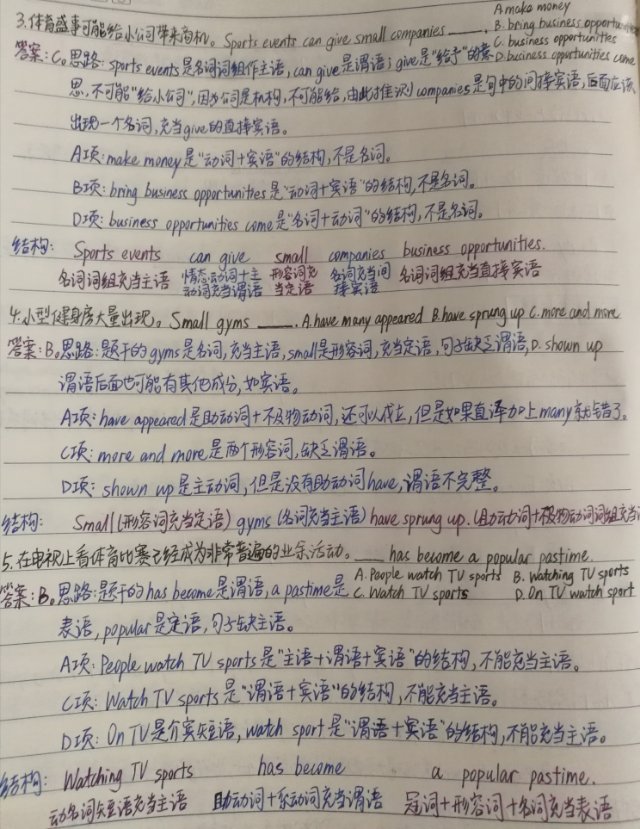 3.体育盛事可能给小公司带来商机。Sports events can give small companies ____.
A.make money
B.bring business opportunities
C.business opportunities
D.business opportunities come
答案:C。思路:sports events是名词词组作主语,can give是谓语;give是“给予”的意
思,不可能“给小公司”,因为公司是机构,不可能给,由此推测companies是句中的间接宾语,后面应该
出现一个名词,充当give的直接宾语。
A项:make money是“动词+宾语”的结构,不是名词。
B项:bring business opportunities是“动词+宾语”的结构,不是名词。
D项:business opportunities come是“名词+动词”的结构,不是名词。
结构: Sports events can give small companies business opportunities.
名词词组充当主语 情态动词+主动词充当谓语 形容词充当定语 名词充当间接宾语 名词词组充当直接宾语
4.小型健身房大量出现。Small gyms ____. A.have many appeared B.have sprung up C.more and more
D.shown up
答案:B。思路:题干的gyms是名词,充当主语,small是形容词,充当定语,句子缺乏谓语,
谓语后面也可能有其他成分,如宾语。
A项:have appeared是助动词+不及物动词,还可以成立,但是如果直译加上many就错了。
C项:more and more是两个形容词,缺乏谓语。
D项:shown up是主动词,但是没有助动词have,谓语不完整。
结构: Small(形容词充当定语) gyms (名词充当主语) have sprung up.(助动词+不及物动词词组充当
5.在电视上看体育比赛已经成为非常普遍的业余活动。____ has become a popular pastime.
A.People watch TV sports B.Watching TV sports
C.Watch TV sports D.On TV watch sport
答案:B。思路:题干的has become是谓语,a pastime是
表语,popular是定语,句子缺主语。
A项:People watch TV sports是“主语+谓语+宾语”的结构,不能充当主语。
C项:Watch TV sports是“谓语+宾语”的结构,不能充当主语。
D项:On TV是介宾短语,watch sport是“谓语+宾语”的结构,不能充当主语。
结构: Watching TV sports has become a popular pastime.
动名词短语充当主语 助动词+系动词充当谓语 冠词+形容词+名词充当表语